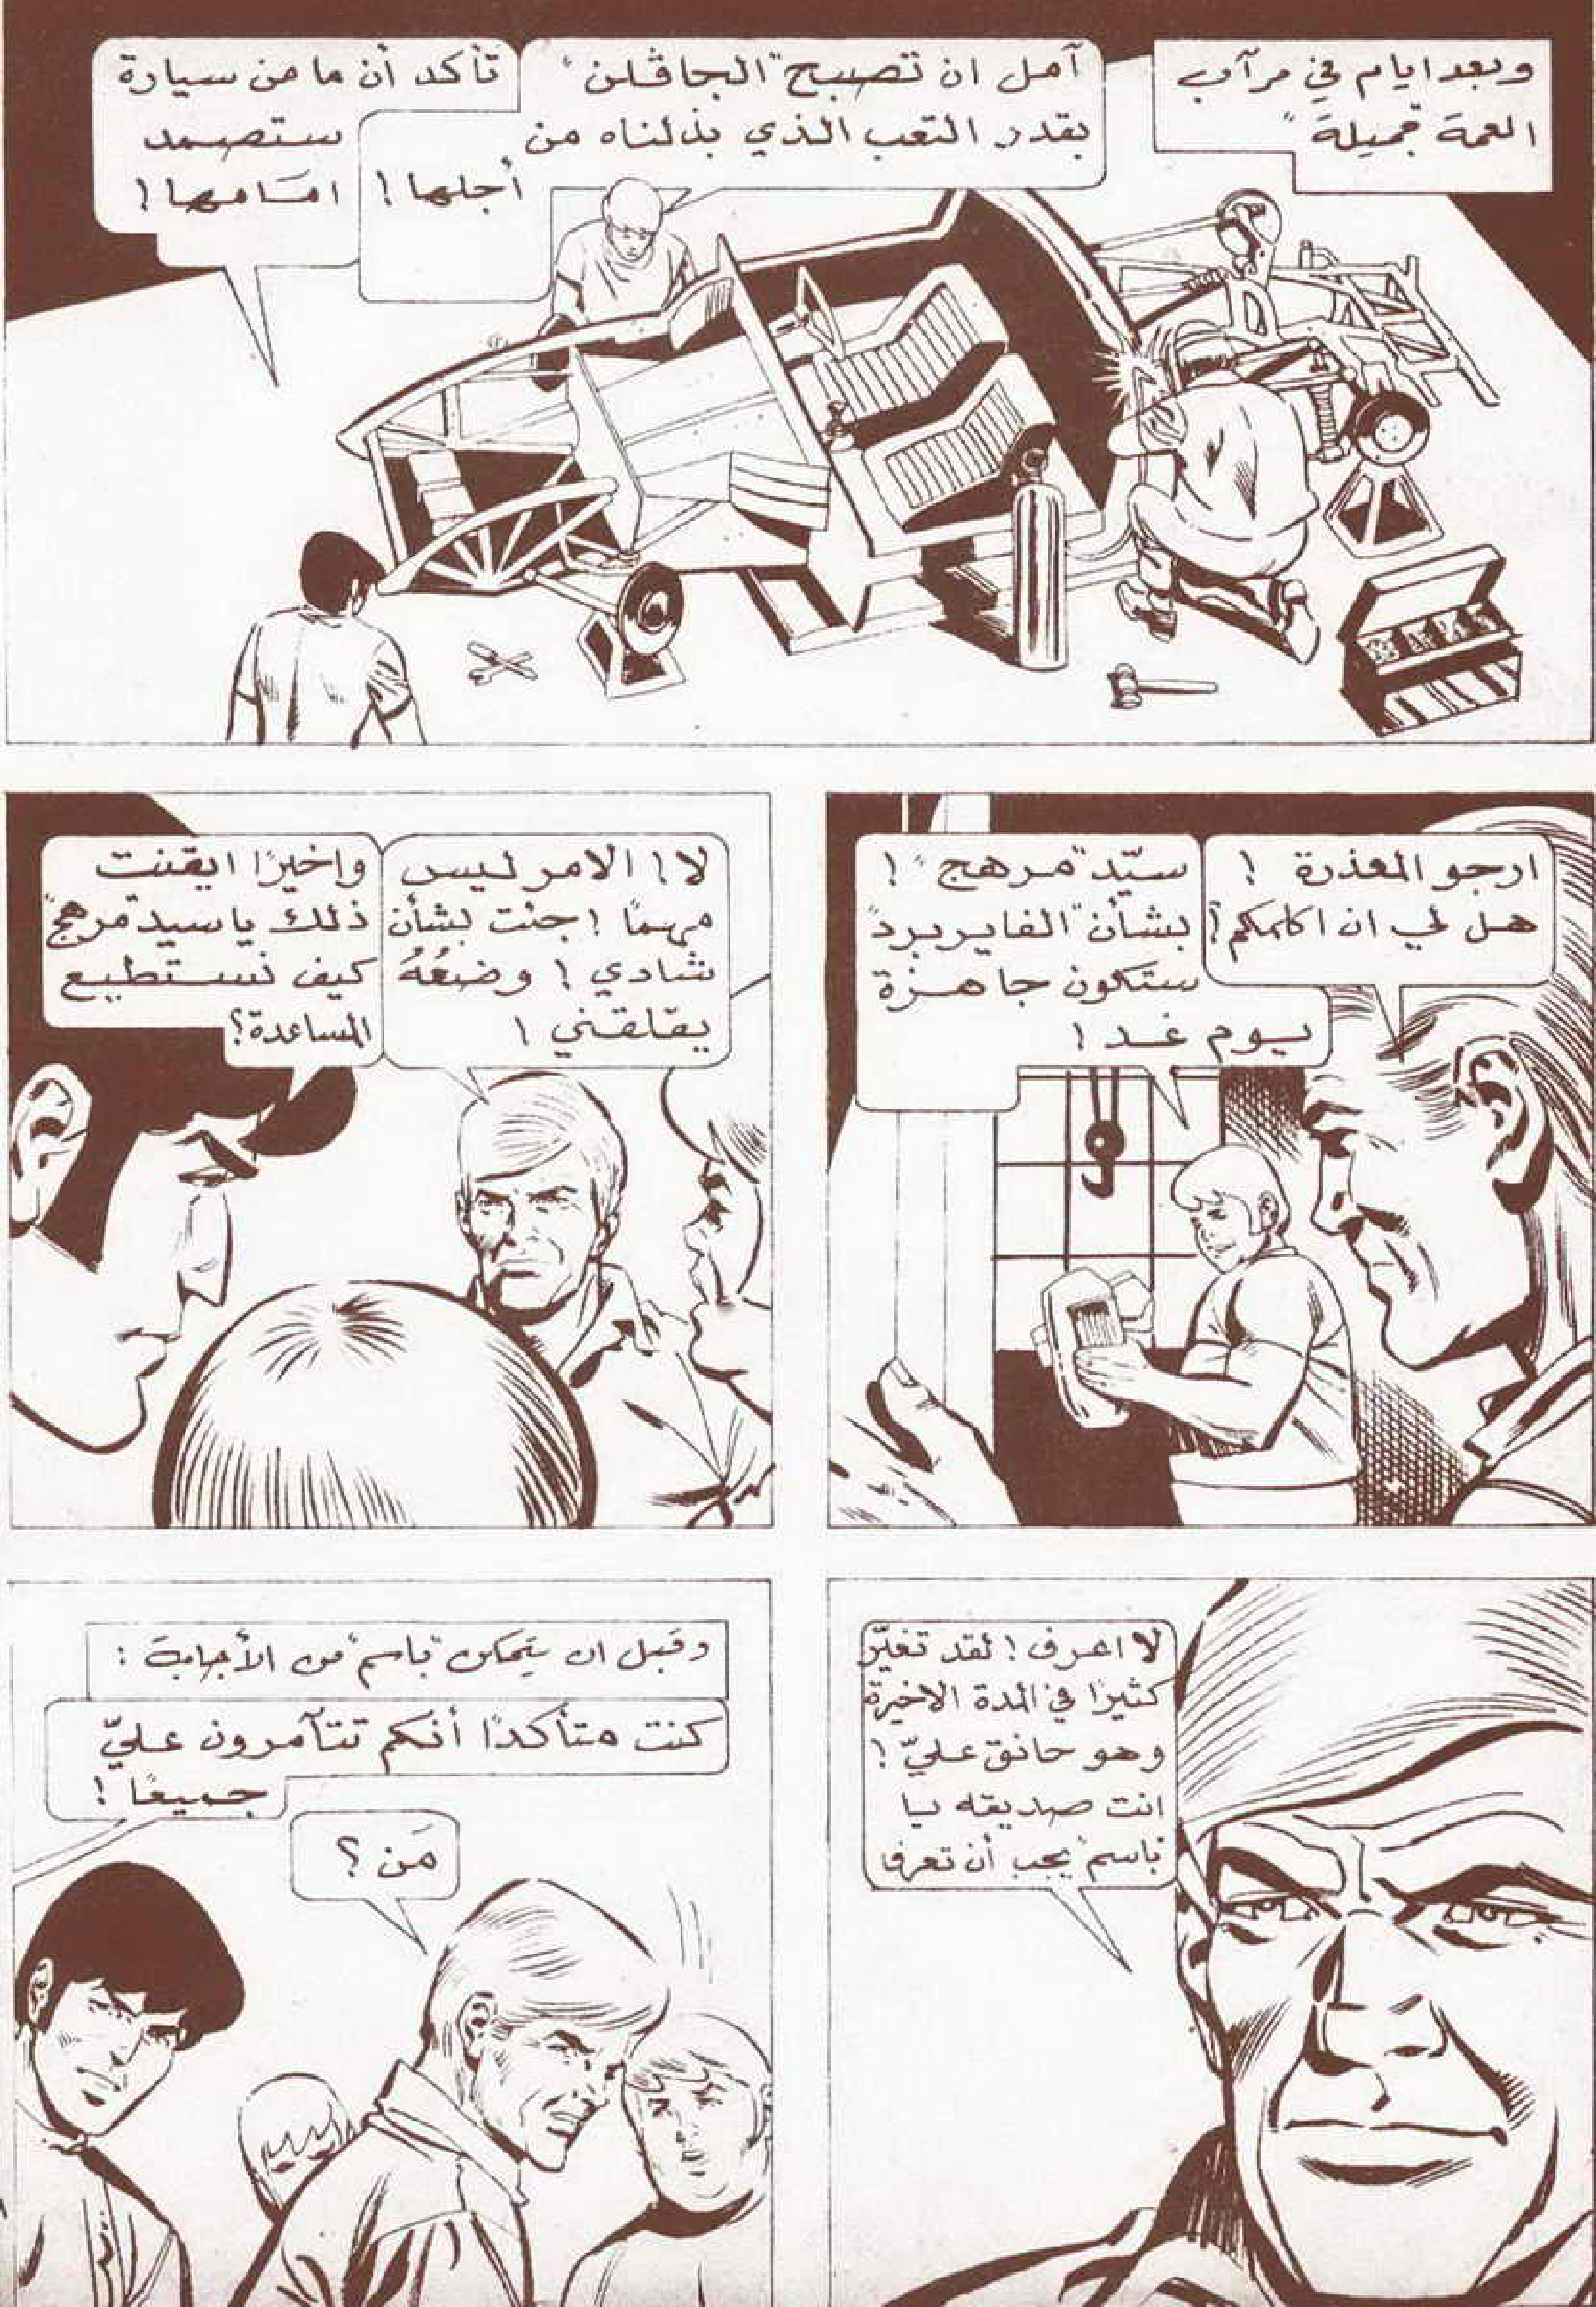 وبعد ايام في مرآب
العمة "جميلة"
آمل ان تصبح "الجاڤلن"
بقدر التعب الذي بذلناه من
أجلها !
تأكد أن ما من سيارة
ستصمد
امامها !
ارجو المعذرة !
هل لي ان اكلمكم ؟
سيّد "مرهج" !
بشأن "الفايربرد"
ستكون جاهزة
يوم غد !
لا ! الامر ليس
مهمًا ! جئت بشأن
شادي ! وضعُهُ
يقلقني !
واخيرًا ايقنت
ذلك يا سيد "مرهج"
كيف نستطيع
المساعدة ؟
لا اعرف ! لقد تغيّر
كثيرًا في المدة الاخيرة
وهو حانق عليّ !
انت صديقه يا
"باسم" يجب أن تعرف !
وقبل ان يتمكن "باسم" من الأجابة :
كنت متأكدًا أنكم تتآمرون عليّ
جميعًا !
مَن ؟